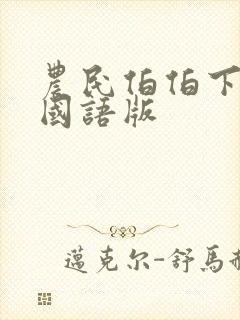 農民伯伯下
國語版
邁克尔-舒馬赫